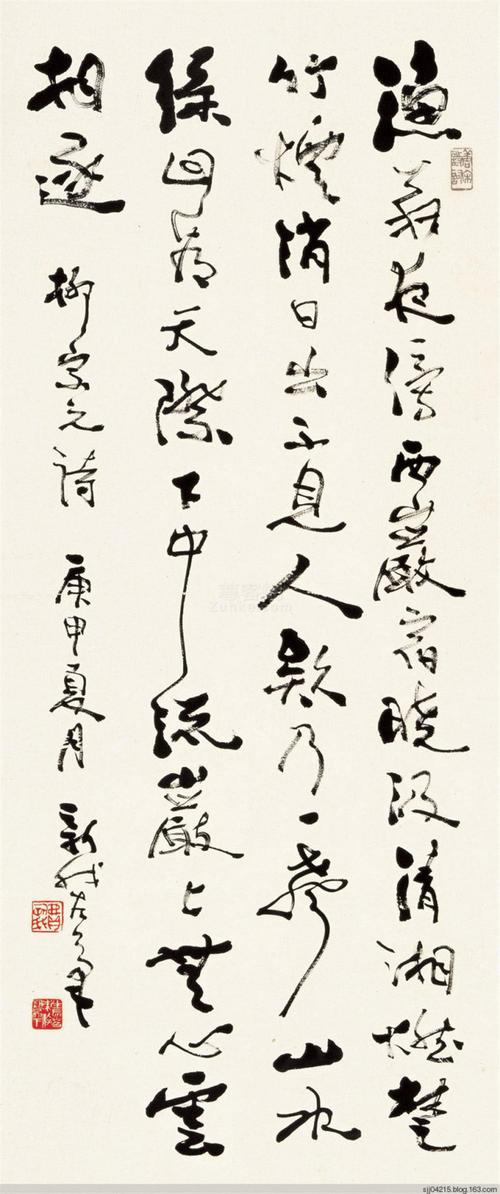 漁翁夜傍西巖宿曉汲清湘燃楚
竹煙消日出不見人欸乃一聲山水
緑回看天際下中流巖上無心雲
相逐 柳宗元詩 庚申夏月 新我左筆
Zunke.com
sjj04215.blog.163.com